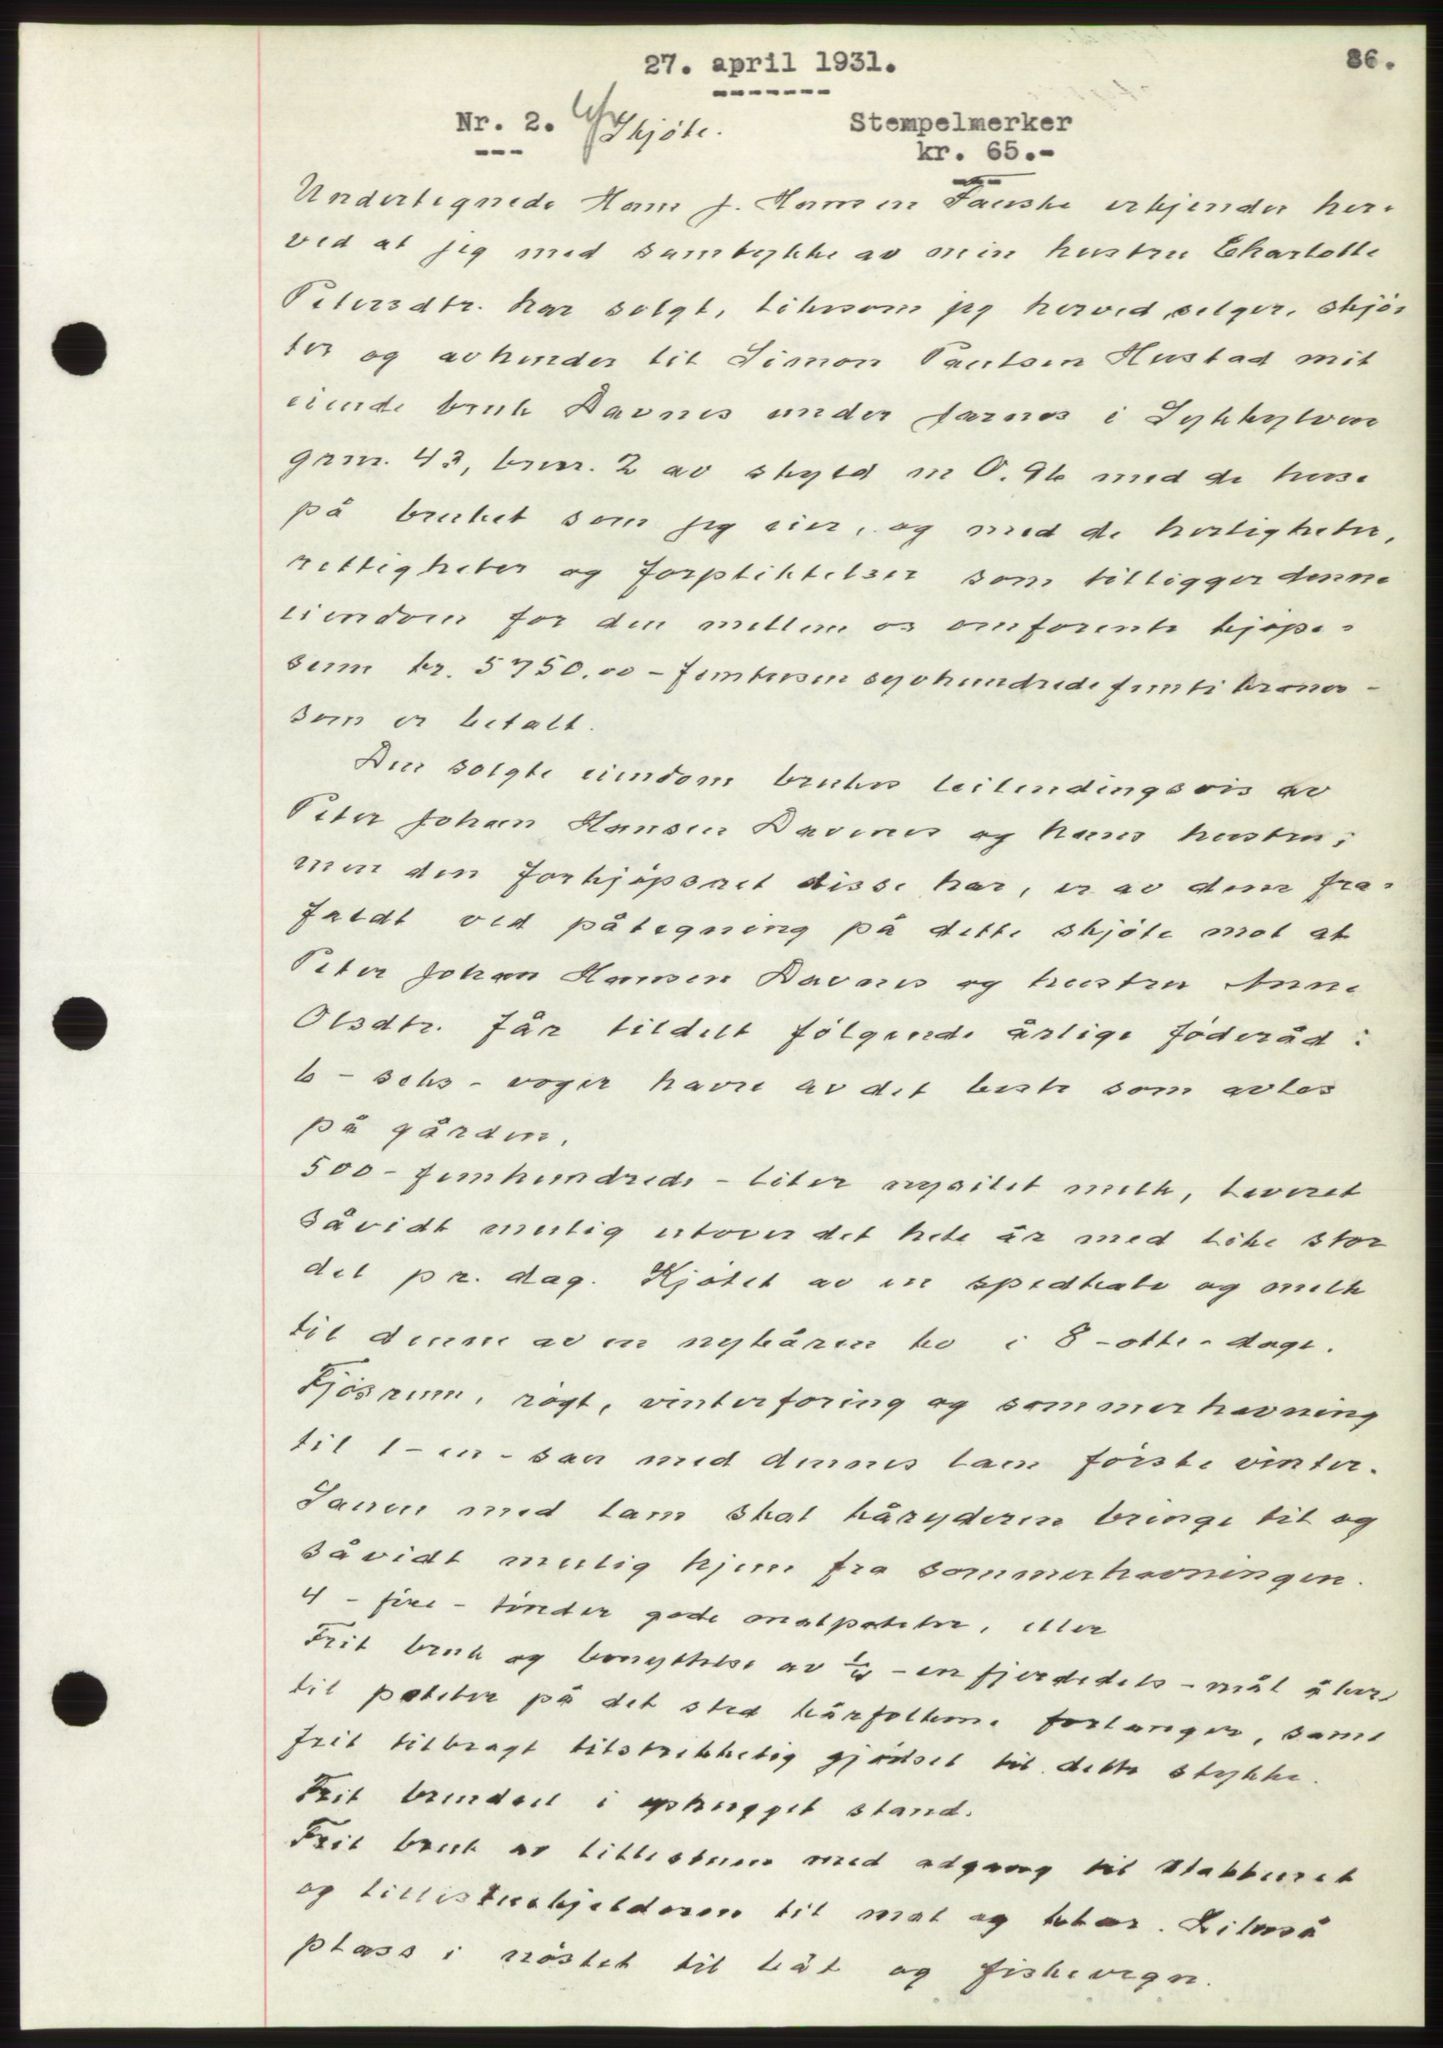 27. april 1931.
86.
Nr. 2. Skjöte.
Stempelmerker
kr. 65.-
Undertegnede Hans J. Hansen Fauske erkjender her-
ved at jeg med samtykke av min hustru Charlotte
Petersdtr. har solgt, likesom jeg herved selger, skjö-
ter og avhender til Simon Paulsen Hustad mit
eiende bruk Davnes under Jarnes i Sykkylven
grnr. 43, brnr. 2 av skyld m 0.96 med de huse
på bruket som jeg eier, og med de herligheter,
rettigheter og forpliktelser som tilligger denne
eiendom for den mellem os omforente kjöpe-
sum kr. 5750.00 - femtusen syvhundrede femti kroner -
som er betalt.
Den solgte eiendom brukes leilendingsvis av
Peter Johan Hansen Davnes og hans hustru;
men den forkjöpsret disse har, er av dem fra-
faldt ved påtegning på dette skjöte mot at
Peter Johan Hansen Davnes og hustru Anne
Olsdtr. får tildelt fölgende årlige föderåd:
6 - seks - voger havre av det beste som avles
på gården.
500 - femhundrede - liter nysilet melk, leveret
såvidt mulig utover det hele år med like stor
del pr. dag. Kjötet av en spedkalv og melk
til denne av en nybåren ko i 8 - otte - dage.
Fjösrum, rögt, vinterforing og sommerhavning
til 1 - en - sau med dennes lam förste vinter.
Sauen med lam skal kåryderen bringe til og
såvidt mulig hjem fra sommerhavningen.
4 - fire - tönder gode matpoteter, eller
Frit bruk og benyttelse av 1/4 - en fjerdedels - mål åker
til poteter på det sted kårfolkene forlanger, samt
frit tilbragt tilstrekkelig gjödsel til dette stykke.
Frit brendsel i ophugget stand.
Frit bruk av lillestuen med adgang til stabburet
og lillestuekjelderen til mat og klær. Likeså
plass i nöstet til båt og fiskevegn.